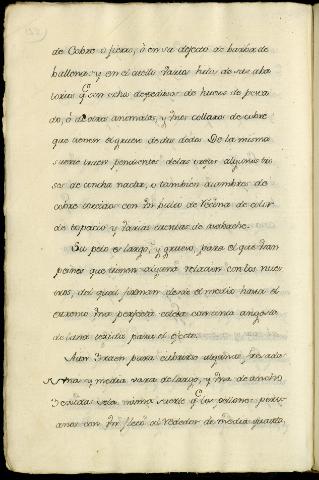 de Cobre o fierro, ò en su defecto de barba de
ballena: y en el cuello varios hilos de sus aba
lorios qe. son echos de pedazos de huesos de pesca
do, ò de otros animales, y unos collares de cobre
que tienen el grueso de dos dedos. De la misma
suerte traen pendientes de las orejas algunos tro
sos de concha nacar, o tambien alambres de
cobre torcido con un pulio de Resina de color
de topacio y varias cuentas de azabache.
Su pelo es largo, y grueso, para el que usan
peines que tienen alguna relacion con los nues
tros, del qual forman desde el medio hasta el
extremo una perfecta coleta con cinta angosta
de lana texida para el efecto.
Aun traen para cubrirse algunas
una y media vara de largo, y una de ancho,
texidas de la misma suerte qe. los
anos con un fleco al rededor de media quarta,